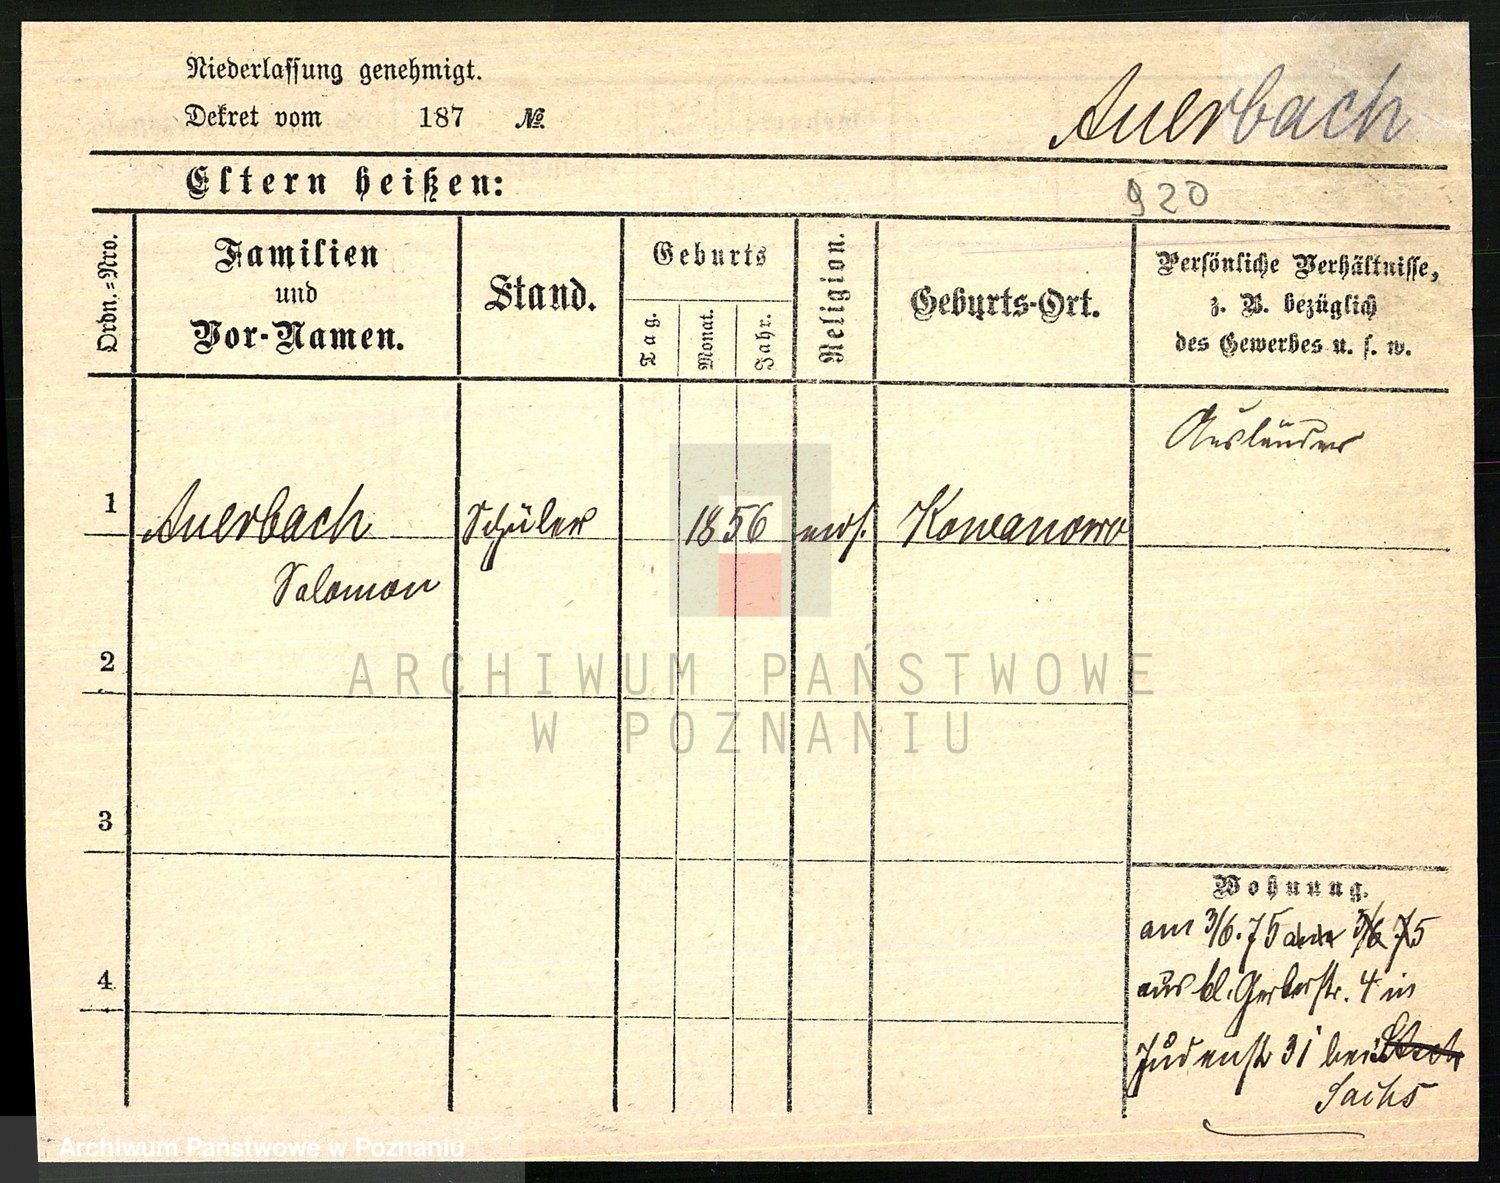 Niederlassung genehmigt.
Dekret vom 187 №
Auerbach
Eltern heißen:
920
Ordn.-Nro.
Familien
und
Vor-Namen.
Stand.
Geburts
Tag.
Monat.
Jahr.
Religion.
Geburts-Ort.
Persönliche Verhältnisse,
z. B. bezüglich
des Gewerbes u. s. w.
Ausländer
1
Auerbach
Schüler
1856
mos.
Kowanowo
Salomon
2
ARCHIWUM PAŃSTWOWE
W POZNANIU
3
Wohnung.
am 3/6.75 3/6 75
aus kl. Gerberstr. 4 in
4
Judenstr 31 bei
Sachs
Archiwum Państwowe w Poznaniu